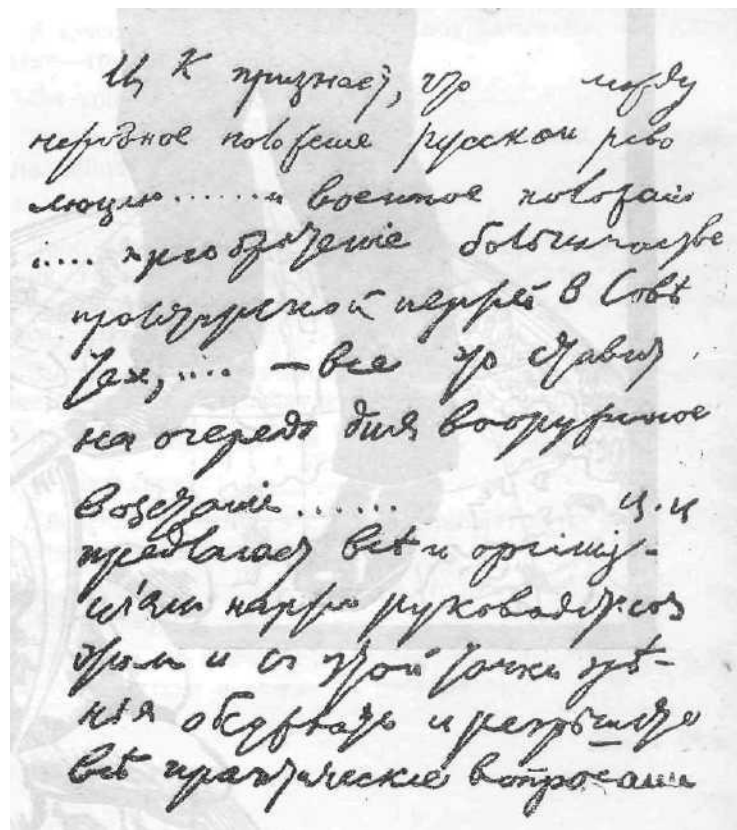 Ц К признает, что между
народное положение русской рево
люции ....... и военное положение
и .... приобретение большинства
пролетарской партией в Совѣ
тах, .... — все это ставит
на очередь дня вооруженное
возстаніе ....... ц.ц
предлагает всѣм организ-
ціям партіи руководиться
этим и съ этой точки зрѣ-
нія обсуждать и разрѣшать
всѣ практическіе вопросами